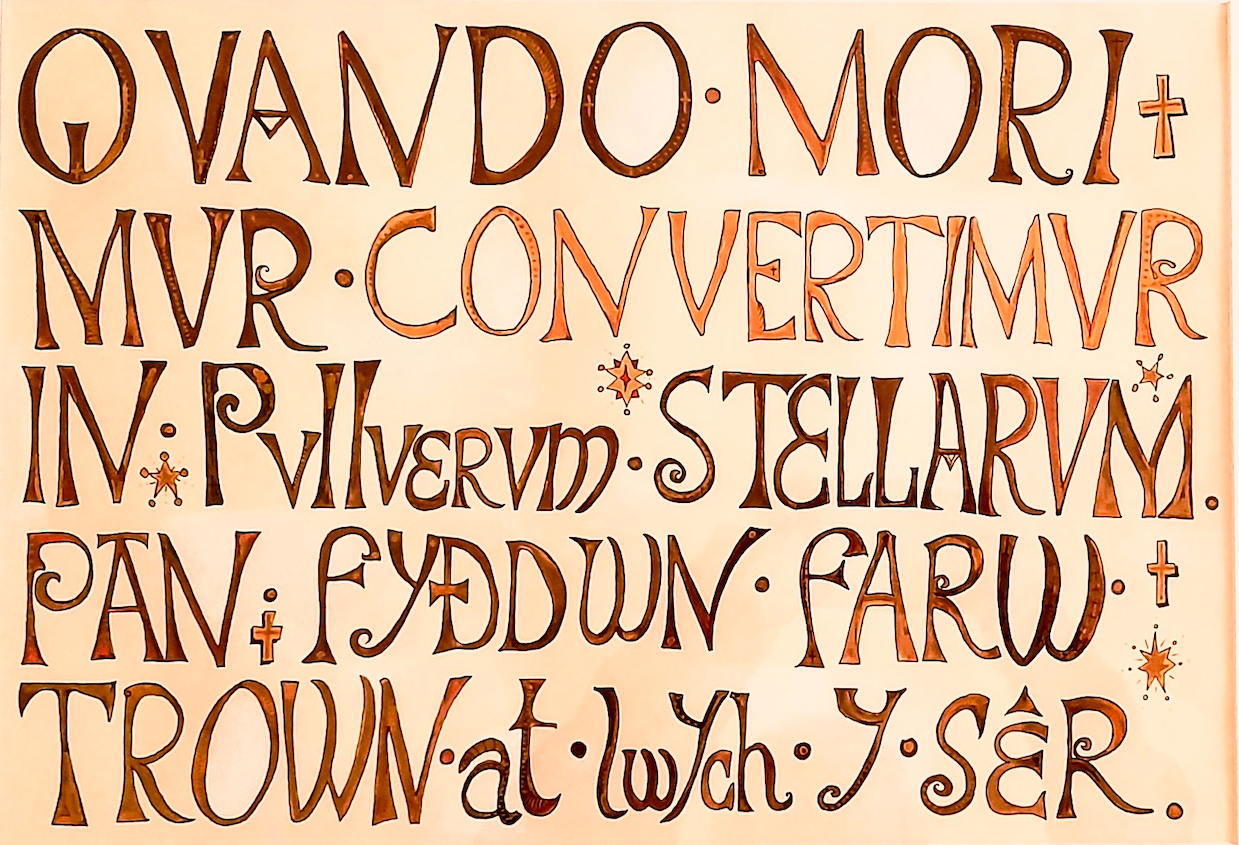 QVANDO · MORI
MVR · CONVERTIMVR
IN : PVllVERVM · STELLARVM.
PAN : FYDDWN · FARW ·
TROWN · at · lwych · y · SÊR.